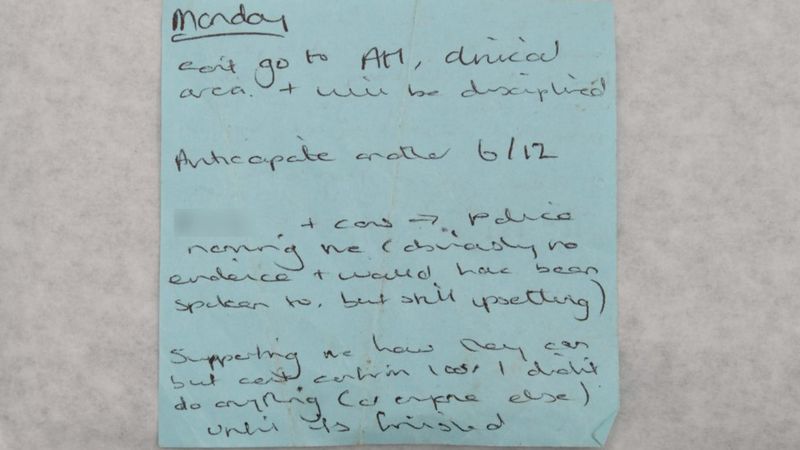 Monday
can't go to AH, clinical
area. + will be disciplined
Anticapate another 6/12
+ cons → police
naming me (obviously no
evidence + would have been
spoken to. but still upsetting)
Supporting me how they can
but can't confirm I didn't
do anything (or anyone else)
until its finished